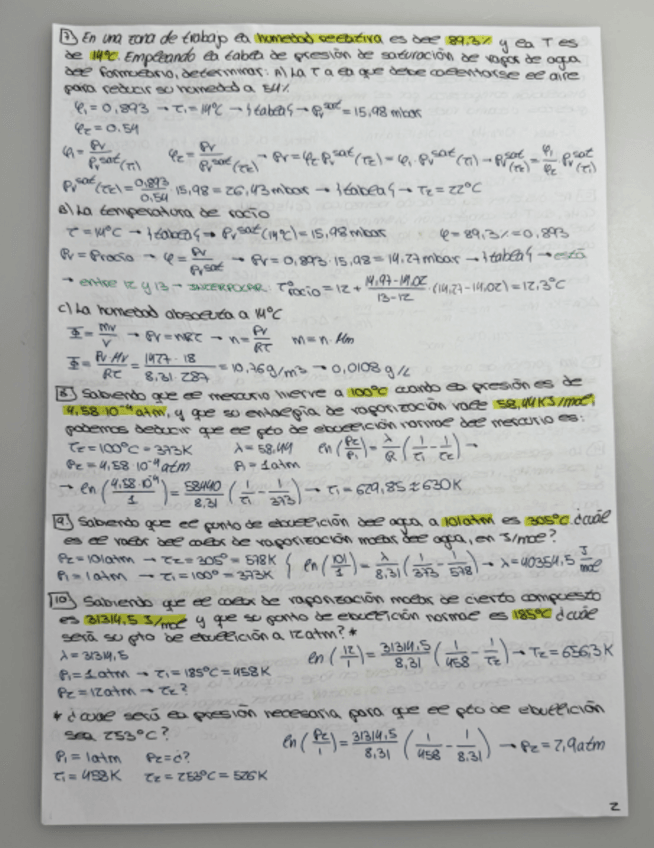 7) En una zona de trabajo la humedad relativa es del 89,3% y la T es
de 14°C. Empleando la tabla de presión de saturación de vapor de agua
del formulario, determinar: A) La T a la que debe calentarse el aire
para reducir su humedad a 54%
φ₁ = 0,893 → T₁ = 14°C → {tabla} → Pᵥˢᵃᵗ = 15,98 mbar
φ₂ = 0,54
φ₁ = Pv/Pᵥˢᵃᵗ(T₁) φ₂ = Pv/Pᵥˢᵃᵗ(T₂) → Pv = φ₂ Pᵥˢᵃᵗ(T₂) = φ₁ · Pᵥˢᵃᵗ(T₁) → Pᵥˢᵃᵗ(T₂) = φ₁/φ₂ Pᵥˢᵃᵗ(T₁)
Pᵥˢᵃᵗ(T₂) = 0,893/0,54 · 15,98 = 26,43 mbar → {tabla} → T₂ = 22°C
B) La temperatura de rocío
T = 14°C → {tabla} → Pᵥˢᵃᵗ(14°C) = 15,98 mbar φ = 89,3% = 0,893
Pv = Procío → φ = Pv/Pᵥˢᵃᵗ → Pv = 0,893 · 15,98 = 14,27 mbar → {tabla} → está
→ entre 12 y 13 → INTERPOLAR T°rocío = 12 + 14,97-14,02/13-12 · (14,27-14,02) = 12,3°C
C) La humedad absoluta a 14°C
Φ = mv/V → Pv = nRT → n = Pv/RT m = n · Mm
Φ = Pv·Mv/RT = 1427 · 18/8,31 · 287 = 10,76 g/m³ → 0,0108 g/L
8) Sabiendo que el mercurio hierve a 100°C cuando la presión es de
4,58·10⁻⁴ atm, y que su entalpía de vaporización vale 58,44 KJ/mol,
podemos deducir que el pto de ebullición normal del mercurio es:
T₂ = 100°C = 373K λ = 58,44 ln(P₂/P₁) = λ/R (1/T₁ - 1/T₂) →
P₂ = 4,58·10⁻⁴ atm P₁ = 1 atm
→ ln(4,58·10⁻⁴/1) = 58440/8,31 (1/T₁ - 1/373) → T₁ = 629,85 ≈ 630K
9) Sabiendo que el punto de ebullición del agua a 101 atm es 305°C ¿cuál
es el valor del calor de vaporización molar del agua, en J/mol?
P₂ = 101 atm → T₂ = 305° = 578K { ln(101/1) = λ/8,31 (1/373 - 1/578) → λ = 40354,5 J/mol
P₁ = 1 atm → T₁ = 100° = 373K
10) Sabiendo que el calor de vaporización molar de cierto compuesto
es 31314,5 J/mol y que su punto de ebullición normal es 185°C ¿cuál
será su pto de ebullición a 12 atm? *
λ = 31314,5 ln(12/1) = 31314,5/8,31 (1/458 - 1/T₂) → T₂ = 656,3K
P₁ = 1 atm → T₁ = 185°C = 458K
P₂ = 12 atm → T₂?
* ¿cuál será la presión necesaria para que el pto de ebullición
sea 253°C? ln(P₂/1) = 31314,5/8,31 (1/458 - 1/8,31) → P₂ = 2,9 atm
P₁ = 1 atm P₂ = ¿?
T₁ = 458K T₂ = 253°C = 526K
2